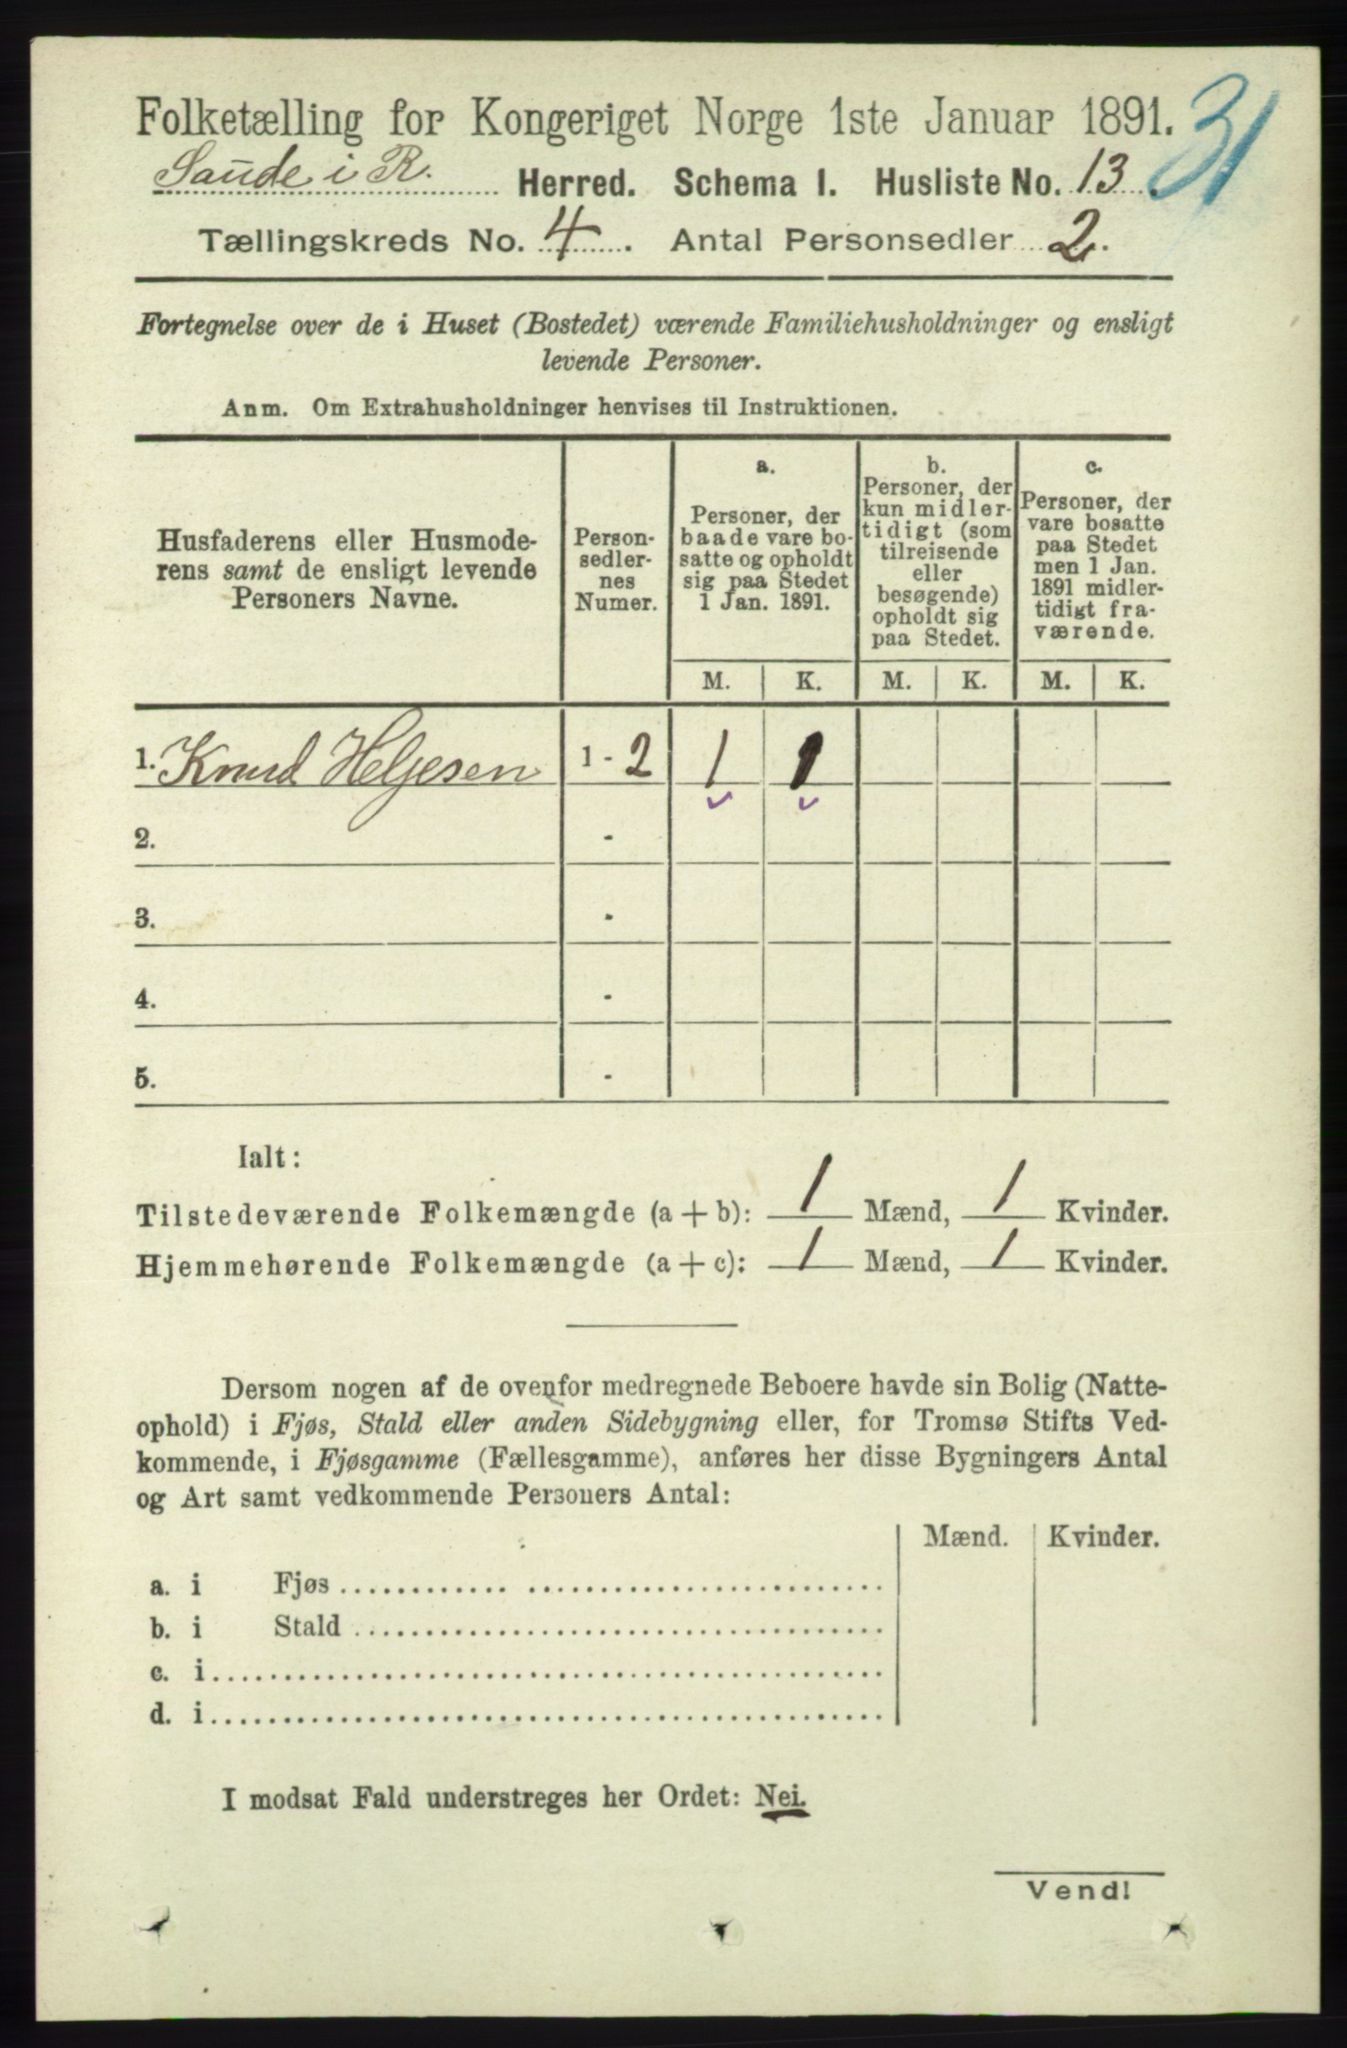 Folketælling for Kongeriget Norge 1ste Januar 1891.
31
Saude i R. Herred. Schema 1. Husliste No. 13.
Tællingskreds No. 4. Antal Personsedler 2.
Fortegnelse over de i Huset (Bostedet) værende Familiehusholdninger og ensligt
levende Personer.
Anm. Om Extrahusholdninger henvises til Instruktionen.
Husfaderens eller Husmode-
rens samt de ensligt levende
Personers Navne.
Person-
sedler-
nes
Numer.
a.
Personer, der
baade vare bo-
satte og opholdt
sig paa Stedet
1 Jan. 1891.
b.
Personer, der
kun midler-
tidigt (som
tilreisende
eller
besøgende)
opholdt sig
paa Stedet.
c.
Personer, der
vare bosatte
paa Stedet
men 1 Jan.
1891 midler-
tidigt fra-
værende.
M. K. M. K. M. K.
1. Knud Heljesen 1 - 2 1 1
2. -
3. -
4. -
5. -
Ialt:
Tilstedeværende Folkemængde (a + b): 1 Mænd, 1 Kvinder.
Hjemmehørende Folkemængde (a + c): 1 Mænd, 1 Kvinder.
Dersom nogen af de ovenfor medregnede Beboere havde sin Bolig (Natte-
ophold) i Fjøs, Stald eller anden Sidebygning eller, for Tromsø Stifts Ved-
kommende, i Fjøsgamme (Fællesgamme), anføres her disse Bygningers Antal
og Art samt vedkommende Personers Antal:
Mænd. Kvinder.
a. i Fjøs
b. i Stald
c. i
d. i
I modsat Fald understreges her Ordet: Nei.
Vend!